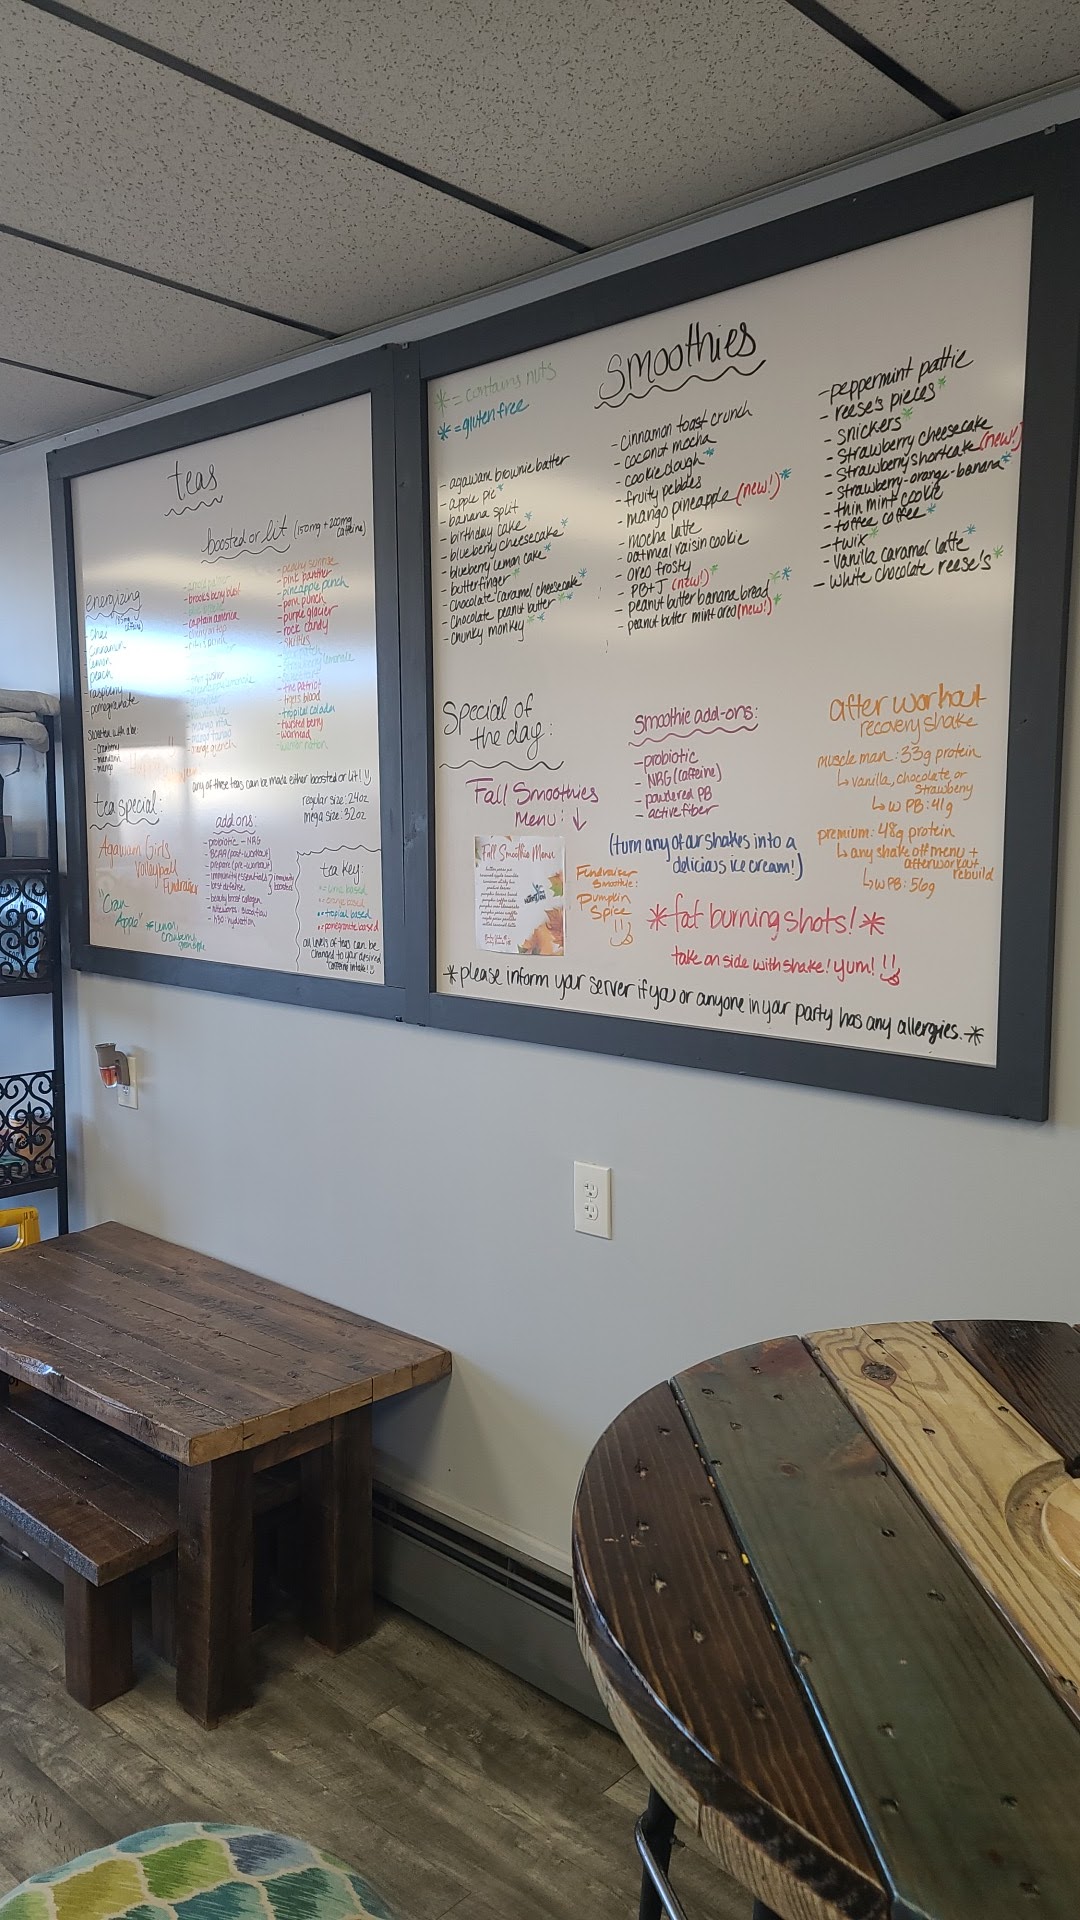 teas
boosted or lit (150mg + 200mg caffeine)
energizing
(85mg caffeine)
- chai
- cinnamon
- lemon
- peach
- raspberry
- pomegranate
- cranberry
- mandarin
- mango
- brooks berry blast
- captain america
- pink panther
- pineapple punch
- porn punch
- purple glacier
- rock candy
- skittles
- the patriot
- tiger's blood
- tropical colada
- twisted berry
any of these teas can be made either boosted or lit!
regular size: 24oz
mega size: 32oz
tea special:
Agawam Girls
Volleyball
Fundraiser
"Cran
Apple"
add ons:
- probiotic - NRG
- BCAA (post-workout)
- prepare (pre-workout)
- best defense
- beauty boost collagen
- H30: hydration
tea key:
tropical based
pomegranate based
all levels of teas can be
changed to your desired
caffeine intake!
smoothies
* = contains nuts
* = gluten free
- agawam brownie batter
- apple pie*
- banana split
- birthday cake*
- blueberry cheesecake*
- blueberry lemon cake*
- butterfinger*
- chocolate caramel cheesecake*
- chocolate peanut butter**
- chunky monkey**
- cinnamon toast crunch
- coconut mocha
- cookie dough*
- fruity pebbles
- mango pineapple (new!)*
- mocha latte
- oatmeal raisin cookie
- oreo frosty
- PB+J (new!)*
- peanut butter banana bread**
- peanut butter mint oreo (new!)*
- peppermint pattie
- reese's pieces*
- snickers*
- strawberry cheesecake
- strawberry shortcake (new!)
- strawberry-orange-banana*
- thin mint cookie
- toffee coffee*
- twix*
- vanilla caramel latte*
- white chocolate reese's*
Special of
the day:
Fall Smoothies
Menu: ↓
Fall Smoothie Menu
Fundraiser
Smoothie:
Pumpkin
Spice
smoothie add-ons:
- probiotic
- NRG (caffeine)
- powdered PB
- active fiber
(turn any of our shakes into a
delicious ice cream!)
*fat burning shots!*
take on side with shake! yum!
after workout
recovery shake
muscle man: 33g protein
↳ vanilla, chocolate or
strawberry
↳ w PB: 41g
premium: 48g protein
↳ any shake off menu +
afterworkout rebuild
↳ w PB: 56g
*please inform your server if you or anyone in your party has any allergies.*